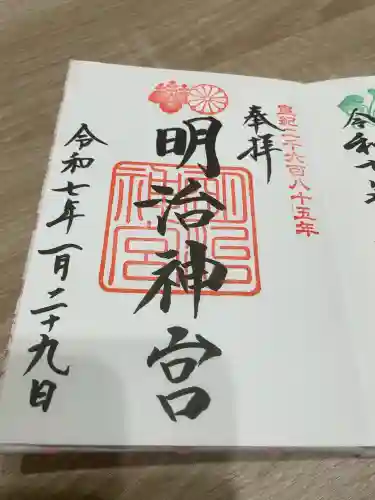 皇紀二千六百八十五年
奉拝
明治神宮
明治神宮
令和七年一月二十九日
令和七年